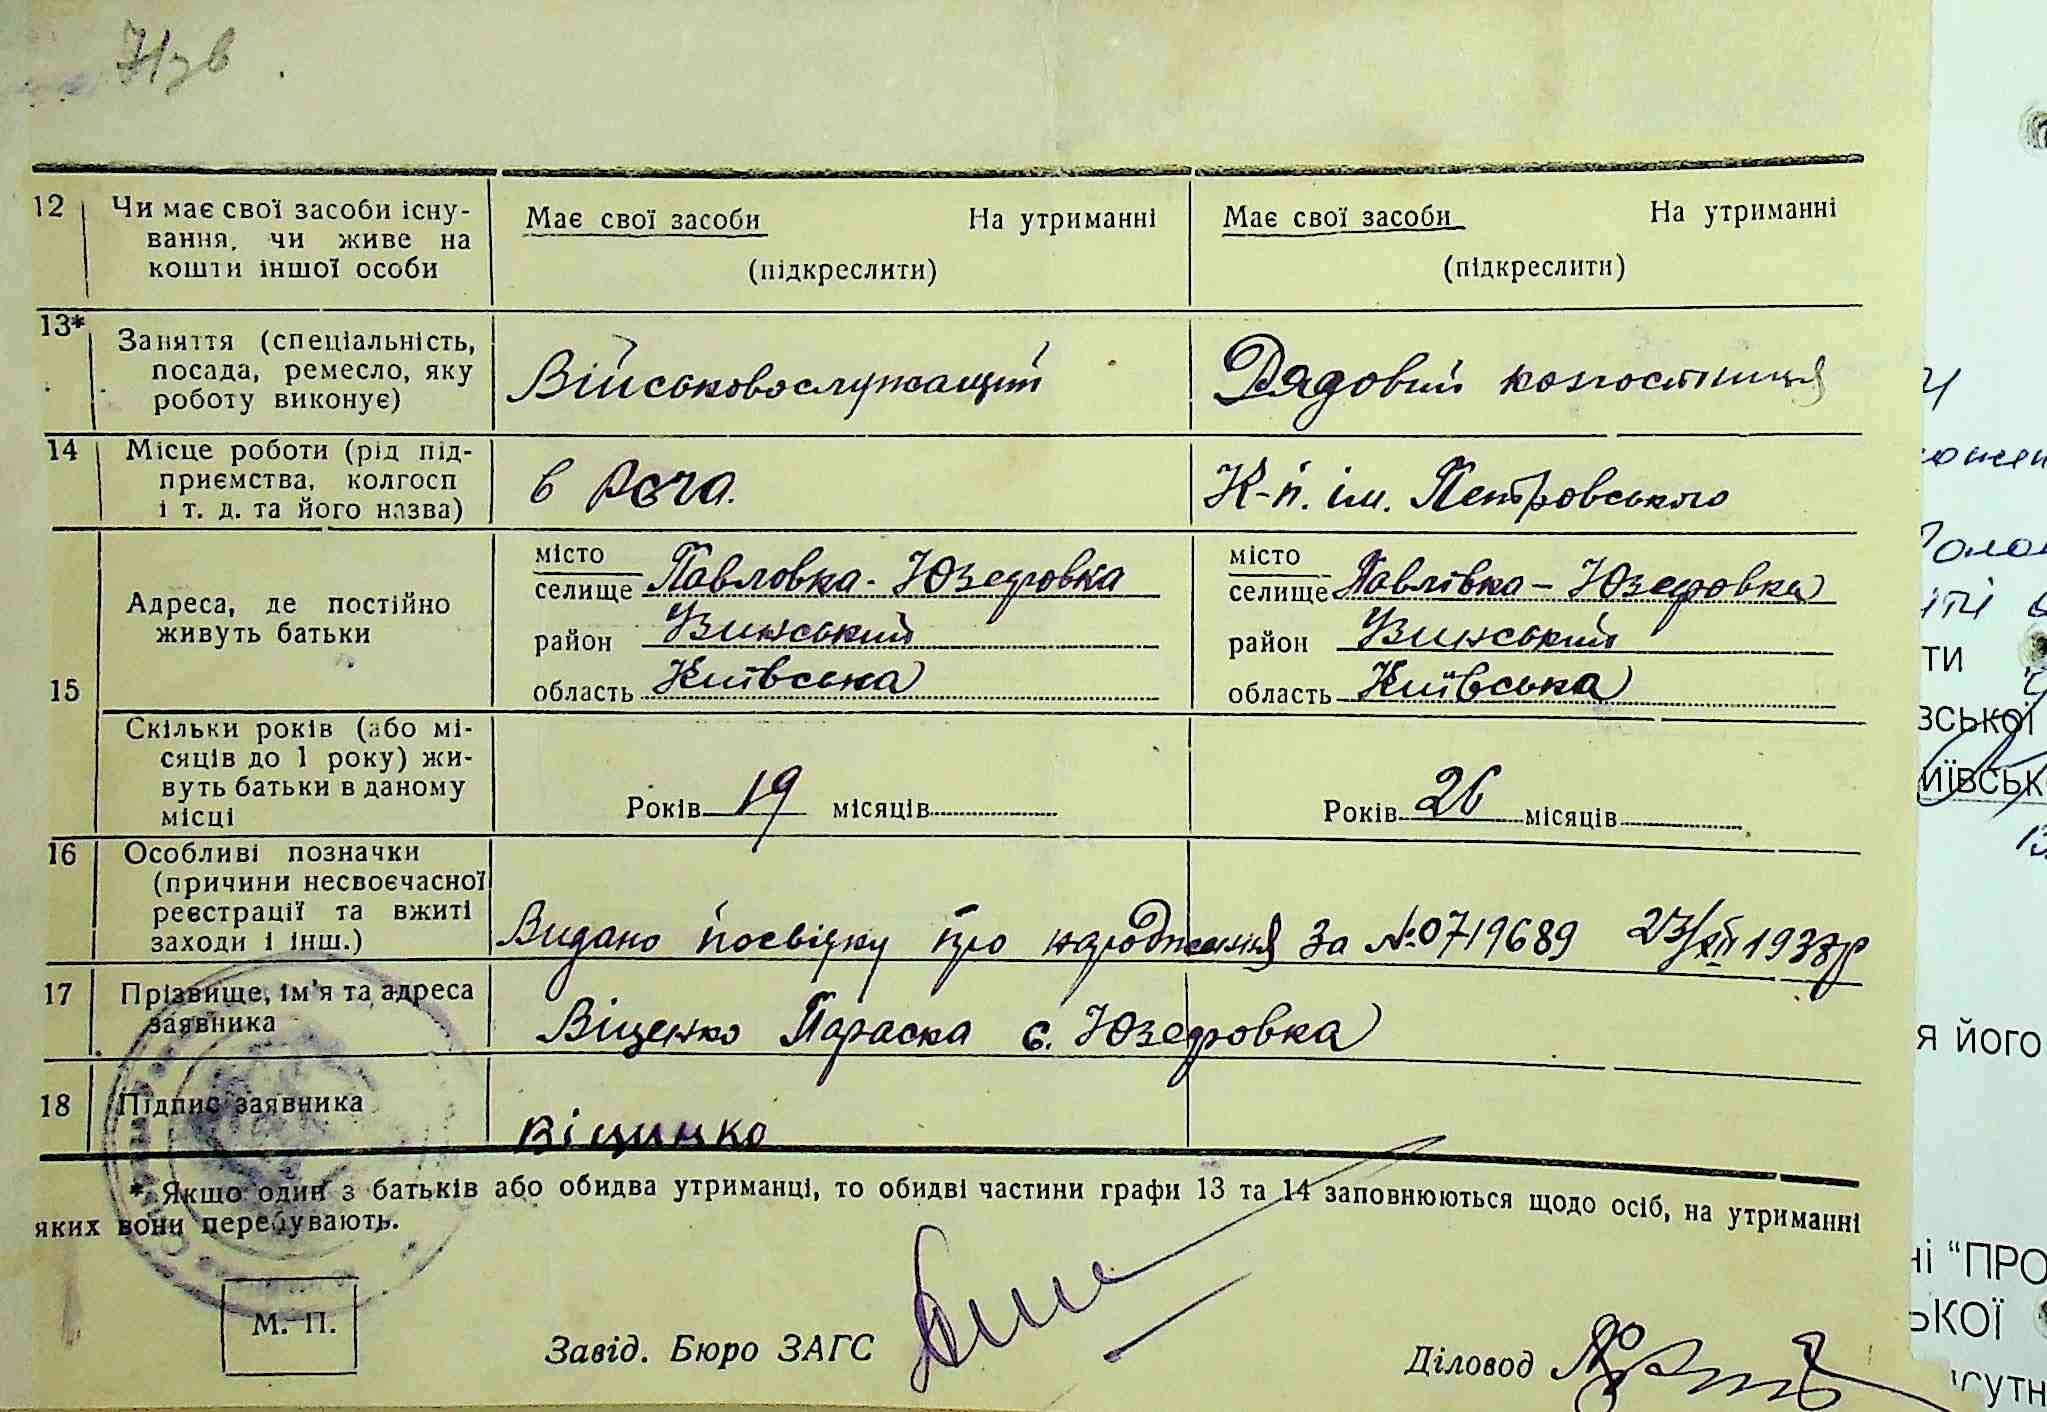 12 Чи має свої засоби існу-
вання, чи живе на
кошти іншої особи
Має свої засоби На утриманні
(підкреслити)
Має свої засоби На утриманні
(підкреслити)
13* Заняття (спеціальність,
посада, ремесло, яку
роботу виконує)
Військовослужащий
Рядовий колгостниця
14 Місце роботи (рід під-
приємства, колгосп
і т. д. та його назва)
в Рсча.
К-п. ім. Петровського
15 Адреса, де постійно
живуть батьки
місто
селище Павловка - Юзефовка
район Узинський
область Київська
місто
селище Павлівка - Юзефовка
район Узинський
область Київська
Скільки років (або мі-
сяців до 1 року) жи-
вуть батьки в даному
місці
Років 19 місяців
Років 26 місяців
16 Особливі позначки
(причини несвоєчасної
реєстрації та вжиті
заходи і інш.)
Видано посвідку про народження за №0719689 23/XII 1937р
17 Прізвище, ім'я та адреса
заявника
Віценко Параска с. Юзефовка
18 Підпис заявника
Віцинко
* Якщо один з батьків або обидва утриманці, то обидві частини графи 13 та 14 заповнюються щодо осіб, на утриманні
яких вони перебувають.
М. П.
Завід. Бюро ЗАГС
Діловод
ти
вської
иївськ
я його
ні “ПРО
ької
сутн